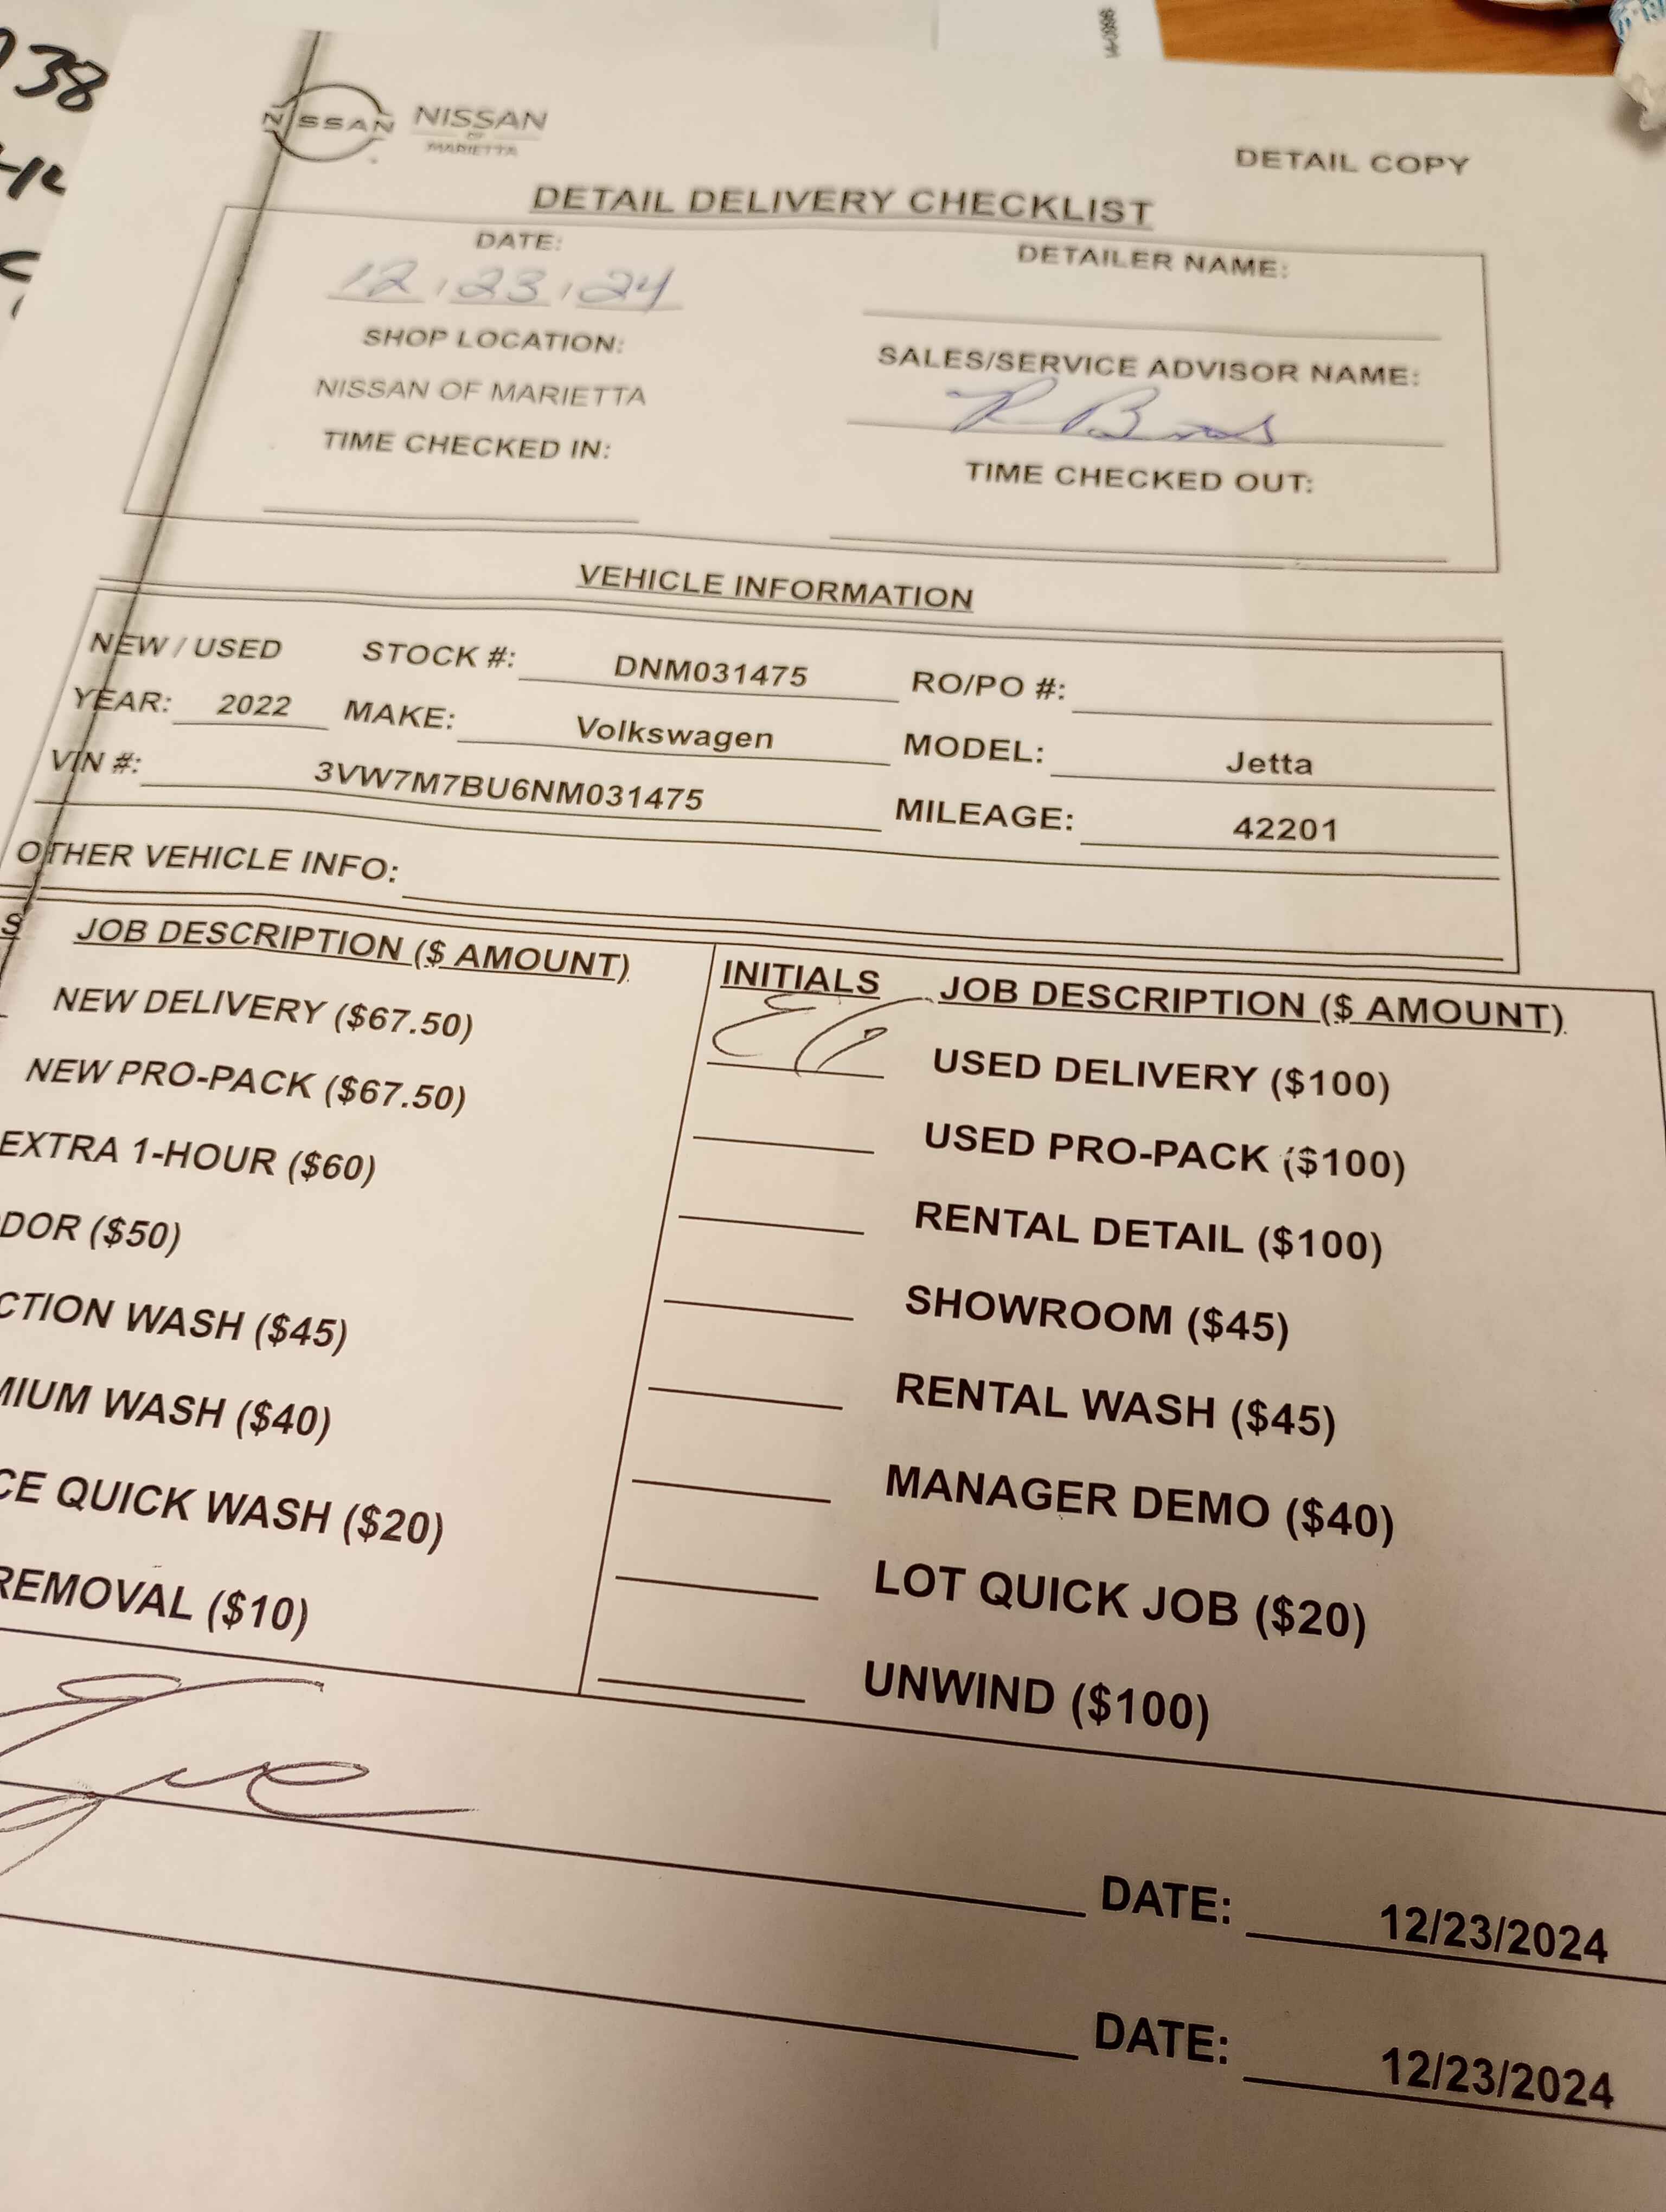 38
NISSAN
NISSAN
OF
MARIETTA
DETAIL COPY
DETAIL DELIVERY CHECKLIST
DATE:
12 . 23 . 24
DETAILER NAME:
SHOP LOCATION:
NISSAN OF MARIETTA
SALES/SERVICE ADVISOR NAME:
TIME CHECKED IN:
TIME CHECKED OUT:
VEHICLE INFORMATION
NEW / USED STOCK #: DNM031475 RO/PO #:
YEAR: 2022 MAKE: Volkswagen MODEL: Jetta
VIN #: 3VW7M7BU6NM031475 MILEAGE: 42201
OTHER VEHICLE INFO:
S JOB DESCRIPTION ($ AMOUNT)
NEW DELIVERY ($67.50)
NEW PRO-PACK ($67.50)
EXTRA 1-HOUR ($60)
DOR ($50)
CTION WASH ($45)
MIUM WASH ($40)
CE QUICK WASH ($20)
REMOVAL ($10)
INITIALS JOB DESCRIPTION ($ AMOUNT)
USED DELIVERY ($100)
USED PRO-PACK ($100)
RENTAL DETAIL ($100)
SHOWROOM ($45)
RENTAL WASH ($45)
MANAGER DEMO ($40)
LOT QUICK JOB ($20)
UNWIND ($100)
DATE: 12/23/2024
DATE: 12/23/2024